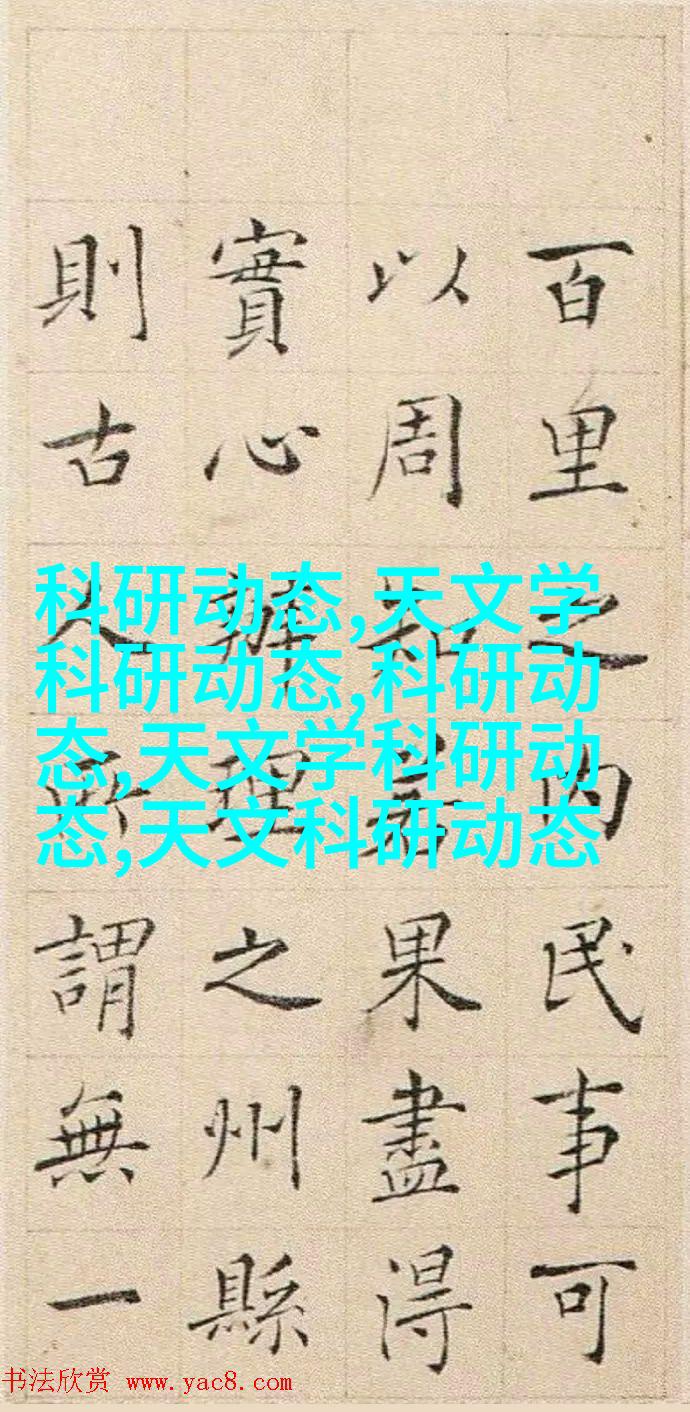 百里之内民事可
以周知若果盡得
實心辦理之州縣
則古人所謂無一
科研动态,天文学
科研动态,科研动
态,天文学科研动
态,天文科研动态
书法欣赏 www.yac8.com